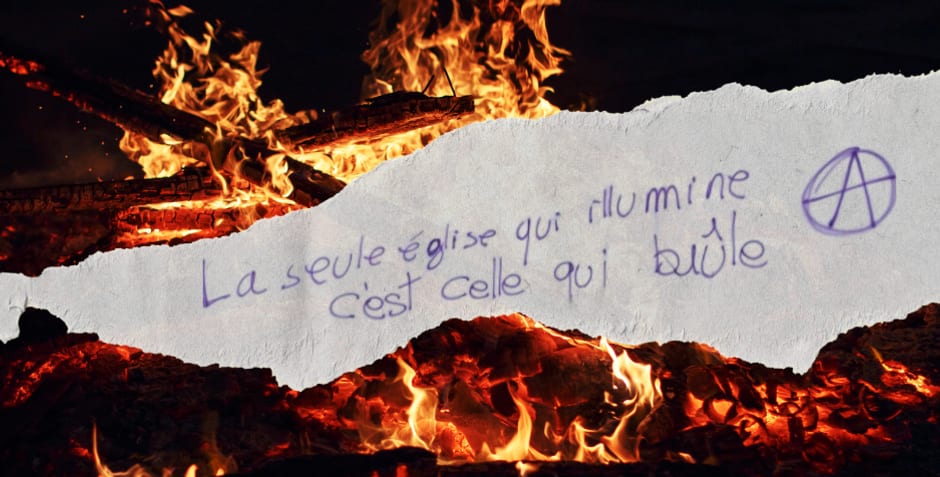 La seule église qui illumine
c'est celle qui brûle